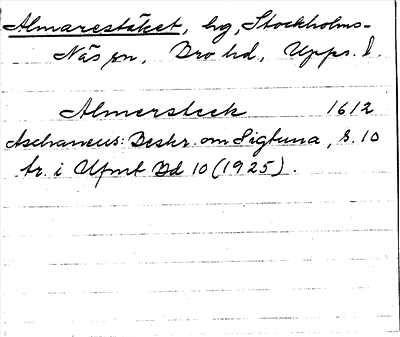 Almarestäket, hg, Stockholms-
Näs sn, Bro hd, Upps. l.
Almersteck 1612
Aschaneus: Beskr. om Sigtuna, s. 10
tr. i Ufmt Bd 10 (1925).